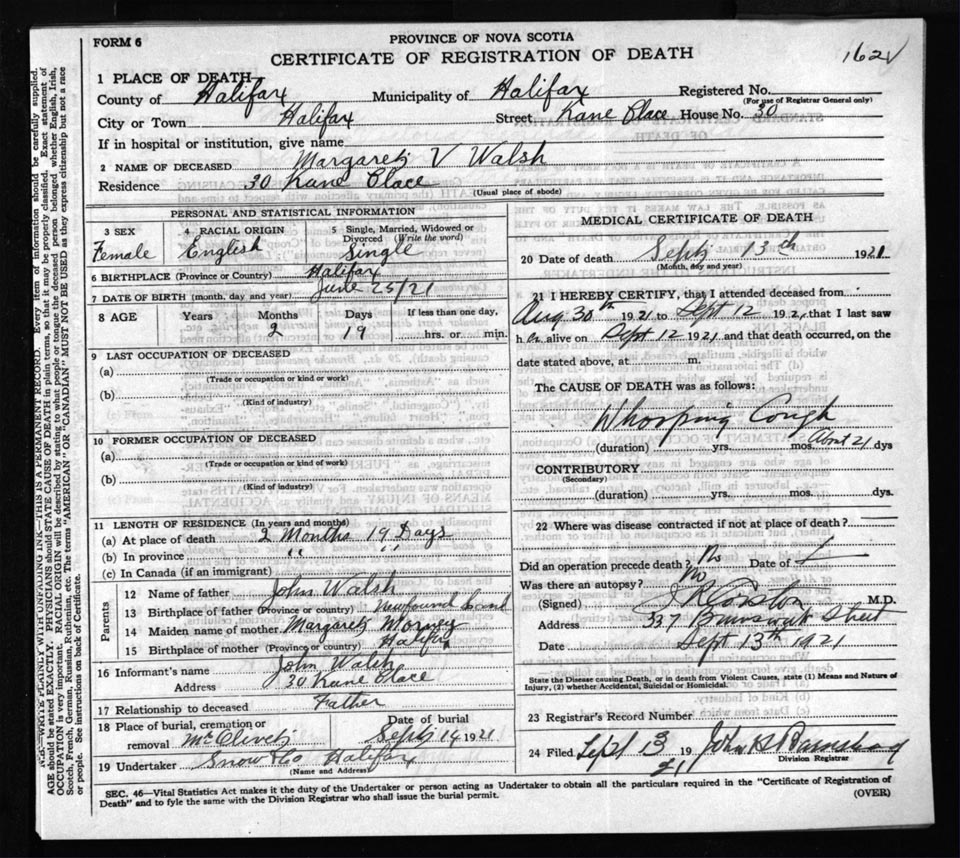 FORM 6
PROVINCE OF NOVA SCOTIA
CERTIFICATE OF REGISTRATION OF DEATH
162
1 PLACE OF DEATH
County of Halifax Municipality of Halifax Registered No.
(For use of Registrar General only)
City or Town Halifax Street Kane Place House No. 30
If in hospital or institution, give name
2 NAME OF DECEASED Margaret V Walsh
Residence 30 Kane Place
(Usual place of abode)
PERSONAL AND STATISTICAL INFORMATION
3 SEX 4 RACIAL ORIGIN 5 Single, Married, Widowed or Divorced (Write the word)
Female English Single
6 BIRTHPLACE (Province or Country) Halifax
7 DATE OF BIRTH (month, day and year) June 25/21
8 AGE Years Months Days If less than one day,
2 19 hrs. or min.
9 LAST OCCUPATION OF DECEASED
(a)
(Trade or occupation or kind or work)
(b)
(Kind of industry)
10 FORMER OCCUPATION OF DECEASED
(a)
(Trade or occupation or kind of work)
(b)
(Kind of industry)
11 LENGTH OF RESIDENCE (In years and months)
(a) At place of death 2 Months 19 Days
(b) In province " "
(c) In Canada (if an immigrant)
Parents
12 Name of father John Walsh
13 Birthplace of father (Province or country) Newfoundland
14 Maiden name of mother Margaret
15 Birthplace of mother (Province or country) Halifax
16 Informant's name John Walsh
Address 30 Kane Place
17 Relationship to deceased Father
18 Place of burial, cremation or removal Mt Olivet Date of burial Sept 14 1921
19 Undertaker Snow & Co Halifax
(Name and Address)
MEDICAL CERTIFICATE OF DEATH
20 Date of death Sept 13th 1921
(Month, day and year)
21 I HEREBY CERTIFY, that I attended deceased from
Aug 30th 1921 to Sept 12 1921 that I last saw
h er alive on Sept 12 1921 and that death occurred, on the
date stated above, at m.
The CAUSE OF DEATH was as follows:
Whooping Cough
(duration) yrs. mos. About 21 dys
CONTRIBUTORY
(Secondary)
(duration) yrs. mos. dys.
22 Where was disease contracted if not at place of death?
Did an operation precede death? No Date of
Was there an autopsy? No
(Signed) M.D.
Address 337 Brunswick Street
Date Sept 13th 1921
State the Disease causing Death, or in death from Violent Causes, state (1) Means and Nature of
Injury, (2) whether Accidental, Suicidal or Homicidal.
23 Registrar's Record Number
24 Filed Sept 13 19 21 John
Division Registrar
SEC. 46—Vital Statistics Act makes it the duty of the Undertaker or person acting as Undertaker to obtain all the particulars required in the "Certificate of Registration of
Death" and to fyle the same with the Division Registrar who shall issue the burial permit.
(OVER)
N.B.—WRITE PLAINLY WITH UNFADING INK—THIS IS A PERMANENT RECORD. Every item of information should be carefully supplied.
AGE should be stated EXACTLY. PHYSICIANS should STATE CAUSE OF DEATH in plain terms, so that it may be properly classified. Exact statement of
OCCUPATION is very important. RACIAL ORIGIN will be described by stating to what people or tongue the deceased person belonged whether English, Irish,
Scotch, French, German, Russian, Ruthenian, etc. The terms "AMERICAN" OR "CANADIAN" MUST NOT BE USED as they express citizenship but not a race
or people. See instructions on back of Certificate.